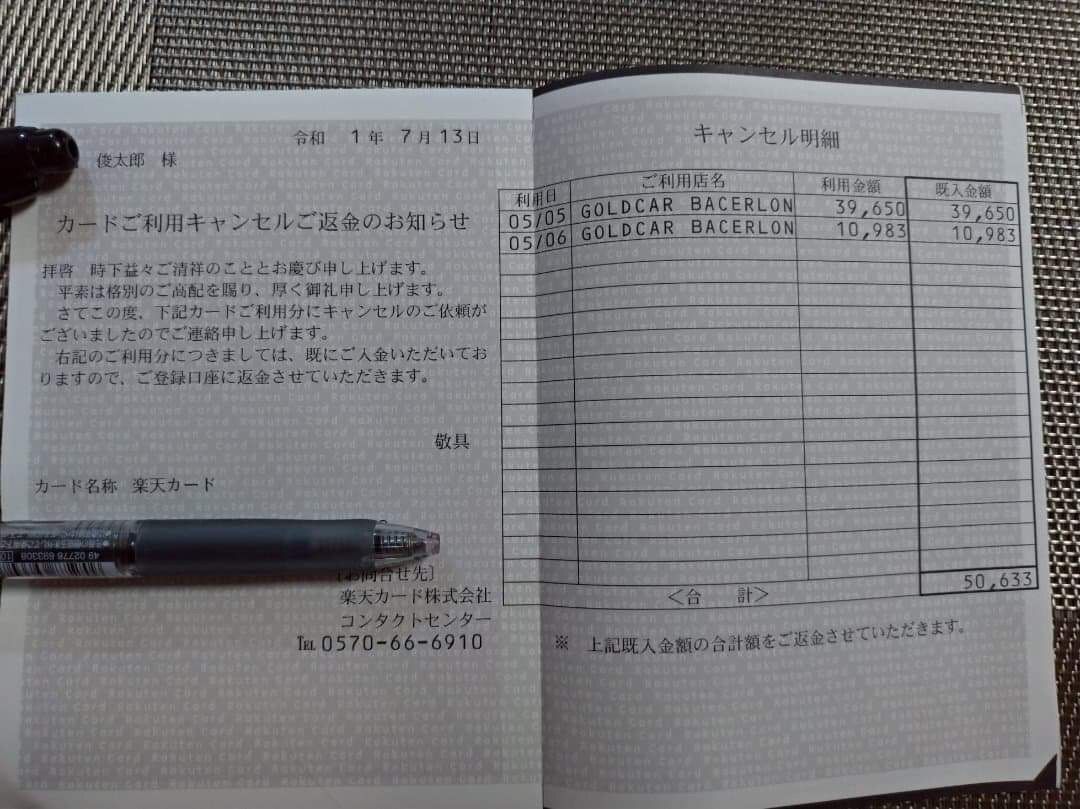 令和 1年 7月13日
俊太郎 様
カードご利用キャンセルご返金のお知らせ
拝啓 時下益々ご清祥のこととお慶び申し上げます。
平素は格別のご高配を賜り、厚く御礼申し上げます。
さてこの度、下記カードご利用分にキャンセルのご依頼が
ございましたのでご連絡申し上げます。
右記のご利用分につきましては、既にご入金いただいてお
りますので、ご登録口座に返金させていただきます。
敬具
カード名称 楽天カード
49 02778 693308
[お問合せ先]
楽天カード株式会社
コンタクトセンター
TEL 0570-66-6910
キャンセル明細
利用日 ご利用店名 利用金額 既入金額
05/05 GOLDCAR BACERLON 39,650 39,650
05/06 GOLDCAR BACERLON 10,983 10,983
<合 計> 50,633
※ 上記既入金額の合計額をご返金させていただきます。
Rakuten Card